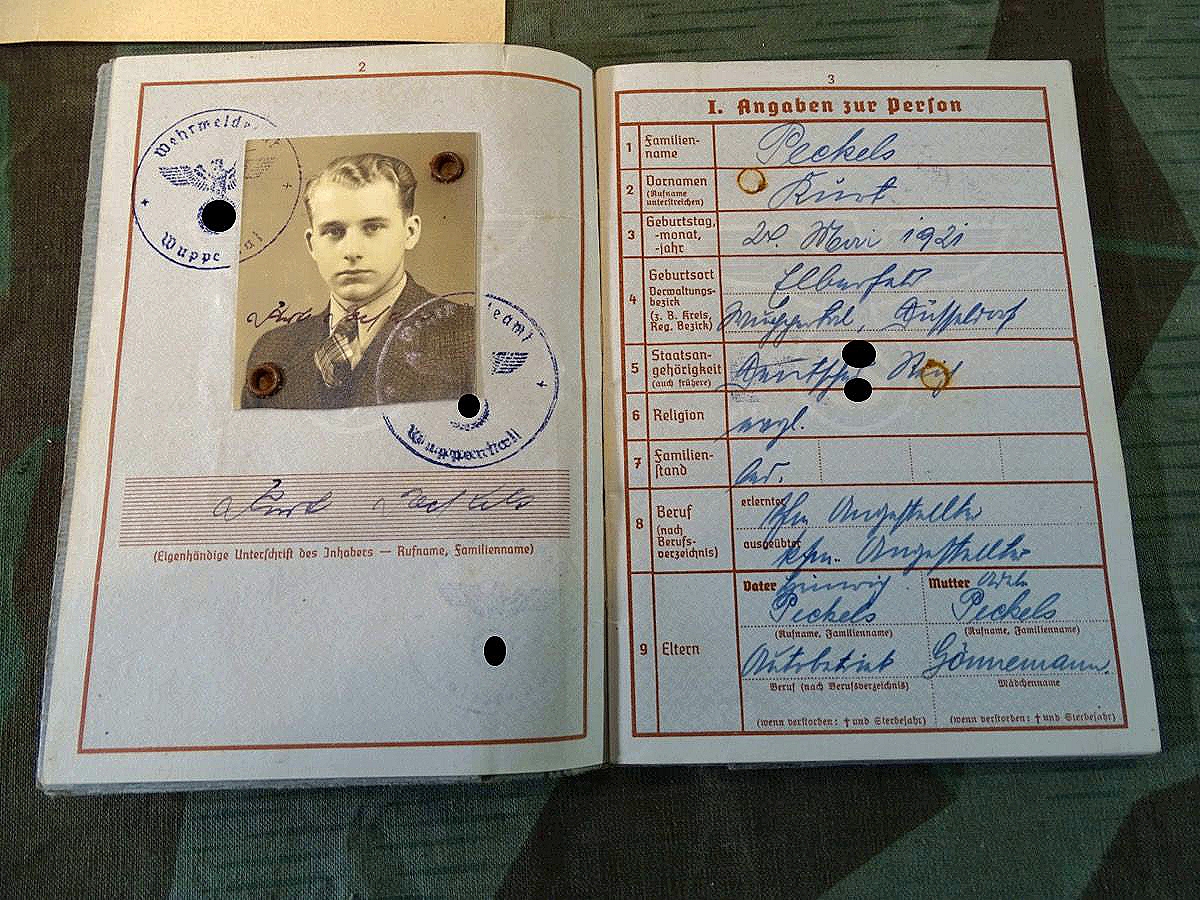 2
Wehrmelde
Wuppe
eamt
Wuppertal
Kurt Peckels
(Eigenhändige Unterschrift des Inhabers — Rufname, Familienname)
3
I. Angaben zur Person
1 Familien-
name
Peckels
2 Vornamen
(Rufname
unterstreichen)
Kurt
3 Geburtstag,
-monat,
-jahr
Mai 1921
4 Geburtsort
Verwaltungs-
bezirk
(z. B. Kreis,
Reg. Bezirk)
Elberfeld
Wuppertal, Düsseldorf
5 Staatsan-
gehörigkeit
(auch frühere)
6 Religion
evgl.
7 Familien-
stand
led.
8 Beruf
(nach
Berufs-
verzeichnis)
erlernter
kfm Angestellter
ausgeübter
kfm. Angestellter
9 Eltern
Vater
Peckels
(Rufname, Familienname)
Beruf (nach Berufsverzeichnis)
(wenn verstorben: † und Sterbejahr)
Mutter
Peckels
(Rufname, Familienname)
Gönnemann
Mädchenname
(wenn verstorben: † und Sterbejahr)